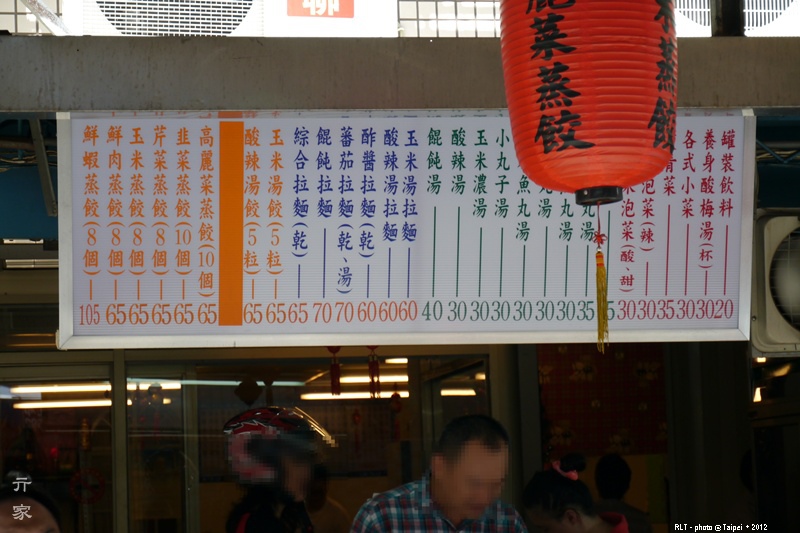 罐裝飲料 20
養身酸梅湯(杯) 30
各式小菜 30
青菜 35
泡菜(酸、辣) 30
泡菜(酸、甜) 30
丸湯
丸湯 35
湯 30
魚丸湯 30
小丸子湯 30
玉米濃湯 30
酸辣湯 30
餛飩湯 40
玉米湯拉麵 60
酸辣湯拉麵 60
酢醬拉麵(乾) 60
蕃茄拉麵(乾、湯) 70
餛飩拉麵 70
綜合拉麵(乾) 65
玉米湯餃(5粒) 65
酸辣湯餃(5粒) 65
高麗菜蒸餃(10個) 65
韭菜蒸餃(10個) 65
芹菜蒸餃(8個) 65
玉米蒸餃(8個) 65
鮮肉蒸餃(8個) 65
鮮蝦蒸餃(8個) 105
麗菜蒸餃
蒸餃
聊
亓家
RLT - photo @Taipei * 2012